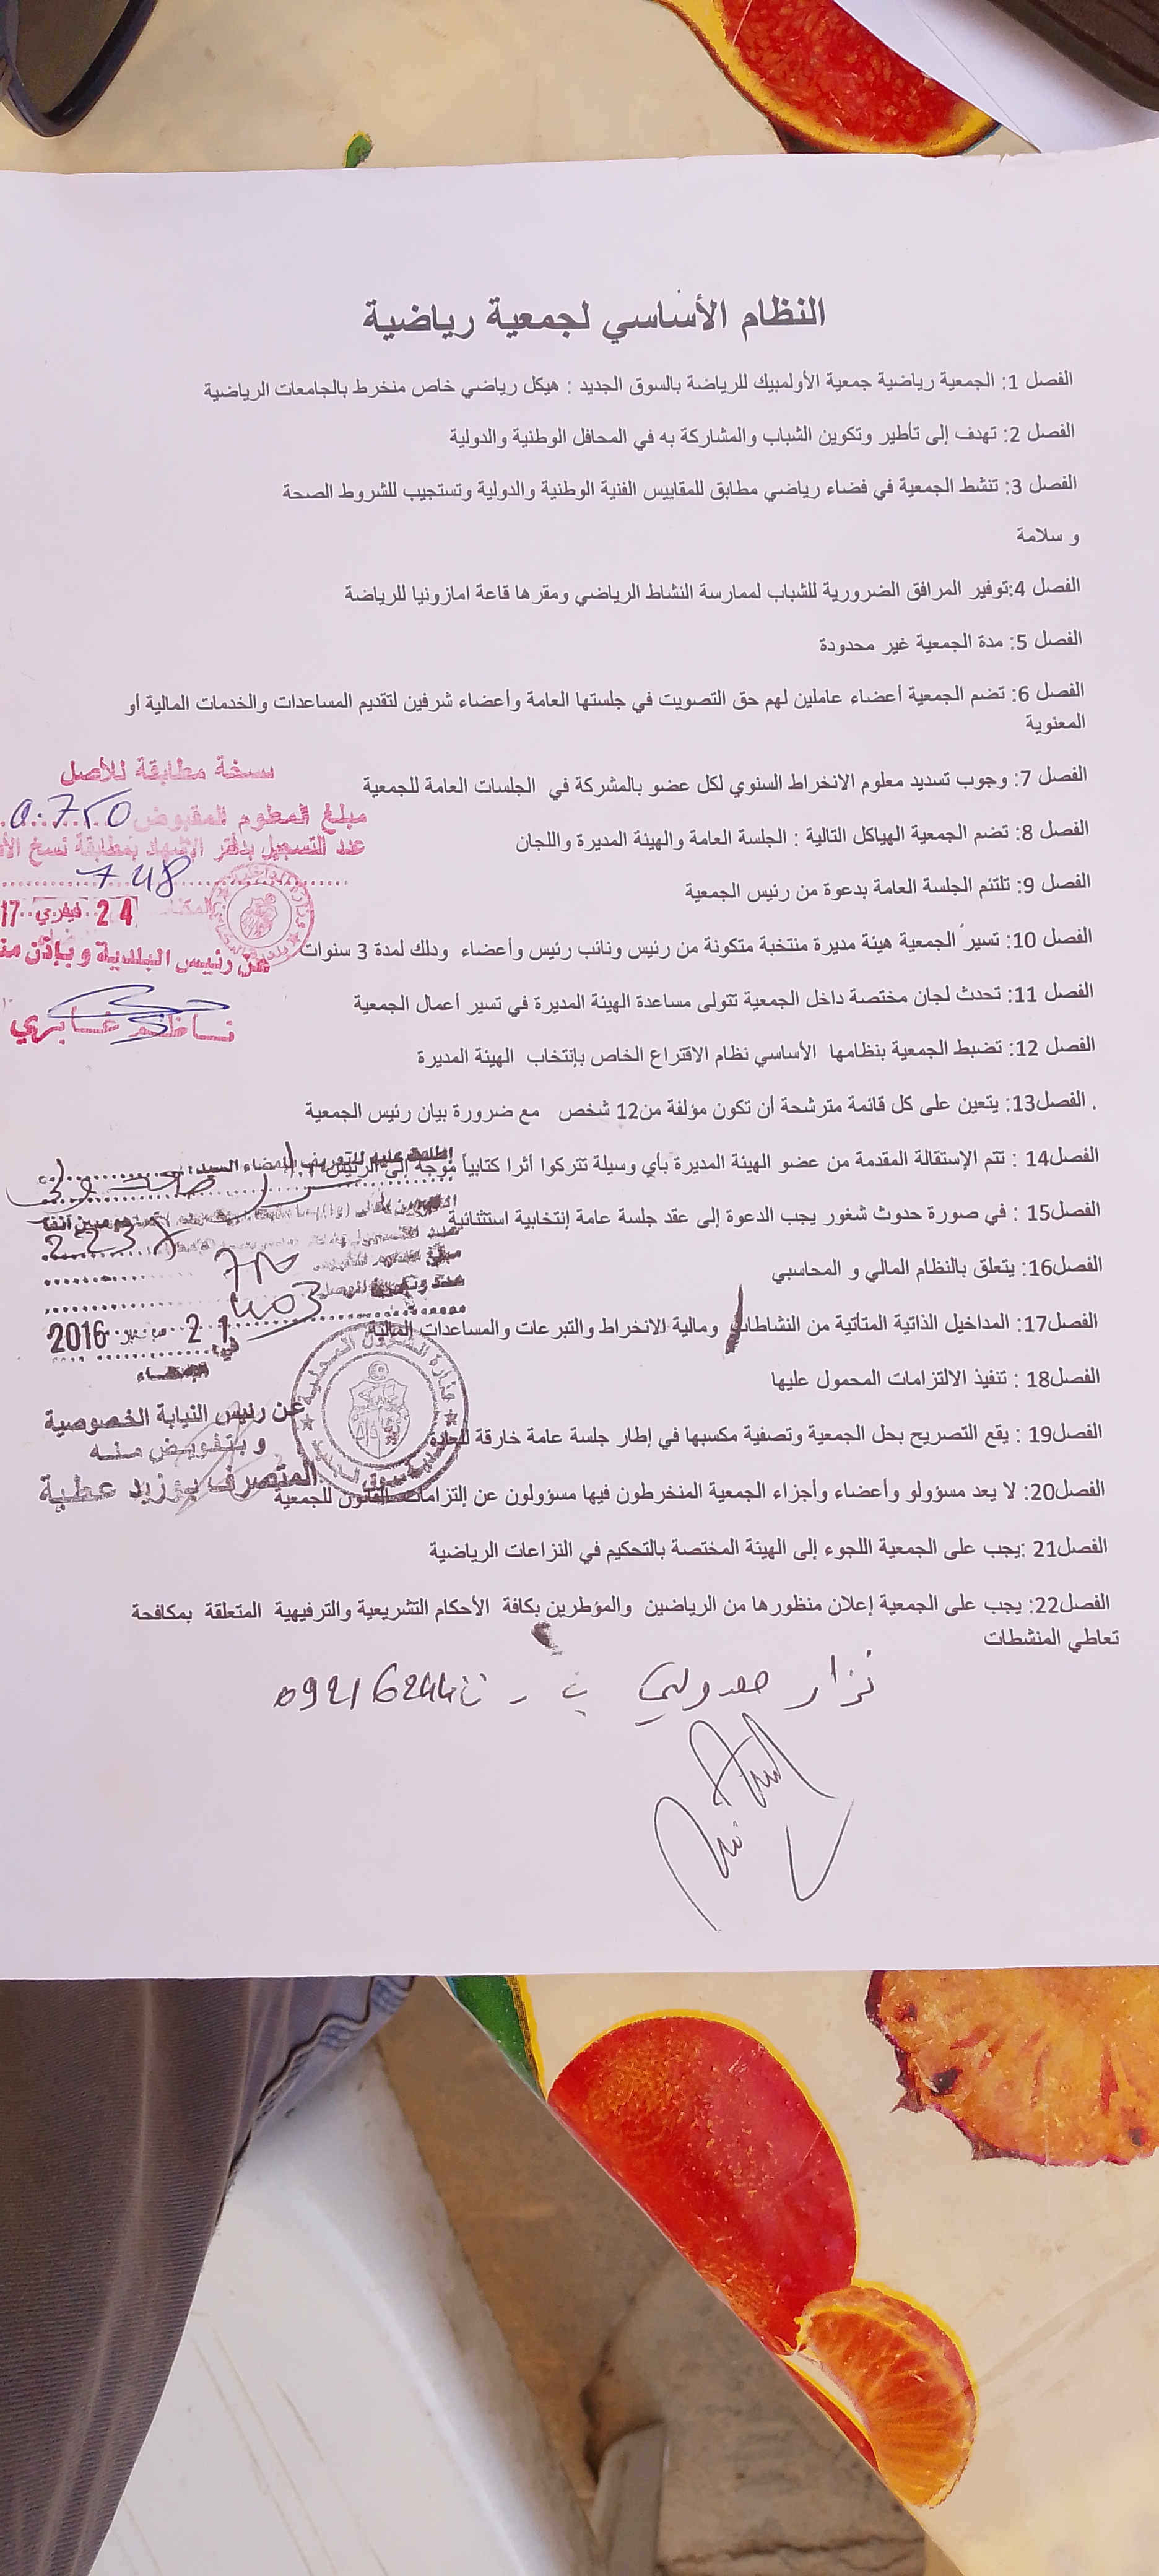 النظام الأساسي لجمعية رياضية
الفصل 1: الجمعية رياضية جمعية الأولمبيك للرياضة بالسوق الجديد : هيكل رياضي خاص منخرط بالجامعات الرياضية
الفصل 2: تهدف إلى تأطير وتكوين الشباب والمشاركة به في المحافل الوطنية والدولية
الفصل 3: تنشط الجمعية في فضاء رياضي مطابق للمقاييس الفنية الوطنية والدولية وتستجيب للشروط الصحة
و سلامة
الفصل 4:توفير المرافق الضرورية للشباب لممارسة النشاط الرياضي ومقرها قاعة امازونيا للرياضة
الفصل 5: مدة الجمعية غير محدودة
الفصل 6: تضم الجمعية أعضاء عاملين لهم حق التصويت في جلستها العامة وأعضاء شرفين لتقديم المساعدات والخدمات المالية أو
المعنوية
الفصل 7: وجوب تسديد معلوم الانخراط السنوي لكل عضو بالمشركة في الجلسات العامة للجمعية
الفصل 8: تضم الجمعية الهياكل التالية : الجلسة العامة والهيئة المديرة واللجان
الفصل 9: تلتئم الجلسة العامة بدعوة من رئيس الجمعية
الفصل 10: تسير الجمعية هيئة مديرة منتخبة متكونة من رئيس ونائب رئيس وأعضاء ودلك لمدة 3 سنوات
الفصل 11: تحدث لجان مختصة داخل الجمعية تتولى مساعدة الهيئة المديرة في تسير أعمال الجمعية
الفصل 12: تضبط الجمعية بنظامها الأساسي نظام الاقتراع الخاص بإنتخاب الهيئة المديرة
. الفصل13: يتعين على كل قائمة مترشحة أن تكون مؤلفة من12 شخص مع ضرورة بيان رئيس الجمعية
الفصل14 : تتم الإستقالة المقدمة من عضو الهيئة المديرة بأي وسيلة تتركوا أثرا كتابياً موجه إلى الرئيس
الفصل15 : في صورة حدوث شغور يجب الدعوة إلى عقد جلسة عامة إنتخابية استثنائية
الفصل16: يتعلق بالنظام المالي و المحاسبي
الفصل17: المداخيل الذاتية المتأتية من النشاطات ومالية الانخراط والتبرعات والمساعدات المالية
الفصل18 : تنفيذ الالتزامات المحمول عليها
الفصل19 : يقع التصريح بحل الجمعية وتصفية مكسبها في إطار جلسة عامة خارقة للعادة
الفصل20: لا يعد مسؤولو وأعضاء وأجزاء الجمعية المنخرطون فيها مسؤولون عن إلتزامات القانون للجمعية
الفصل21 :يجب على الجمعية اللجوء إلى الهيئة المختصة بالتحكيم في النزاعات الرياضية
الفصل22: يجب على الجمعية إعلان منظورها من الرياضين والمؤطرين بكافة الأحكام التشريعية والترفيهية المتعلقة بمكافحة
تعاطي المنشطات
نزار ب - ت 09216244
نسخة مطابقة للأصل
مبلغ المعلوم المقبوض 0.750
عدد التسجيل بدفتر الإشهاد بمطابقة نسخ
748
24 فيفري 17
عن رئيس البلدية وبإذن
إطلعت عليه للتعريف بإمضاء السيد:
403
21 2016
الإمضاء
عن رئيس النيابة الخصوصية
وبتفويض منه
المتصرف بوزيد عطية